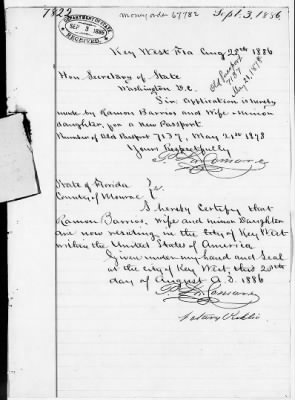 7822
money order 67782
Sept. 3, 1886
DEPARTMENT OF STATE
SEP 3 1886
RECEIVED
Key West Fla Aug 25th 1886
Hon. Secretary of State
Washington D.C.
Old Passport
7137
May 21, 1878
Sir, application is hereby
made by Ramon Barrios and Wife & Minor
daughter, for a new Passport.
Number of Old Passport 7137, May 21st 1878
Yours Respectfully
State of Florida
County of Monroe
I hereby Certify that
Ramon Barrios, Wife and minor Daughter
are now residing in the City of Key West
within the United States of America
Given under my hand and Seal
at the City of Key West this 25th
day of August A.D. 1886
Notary Public